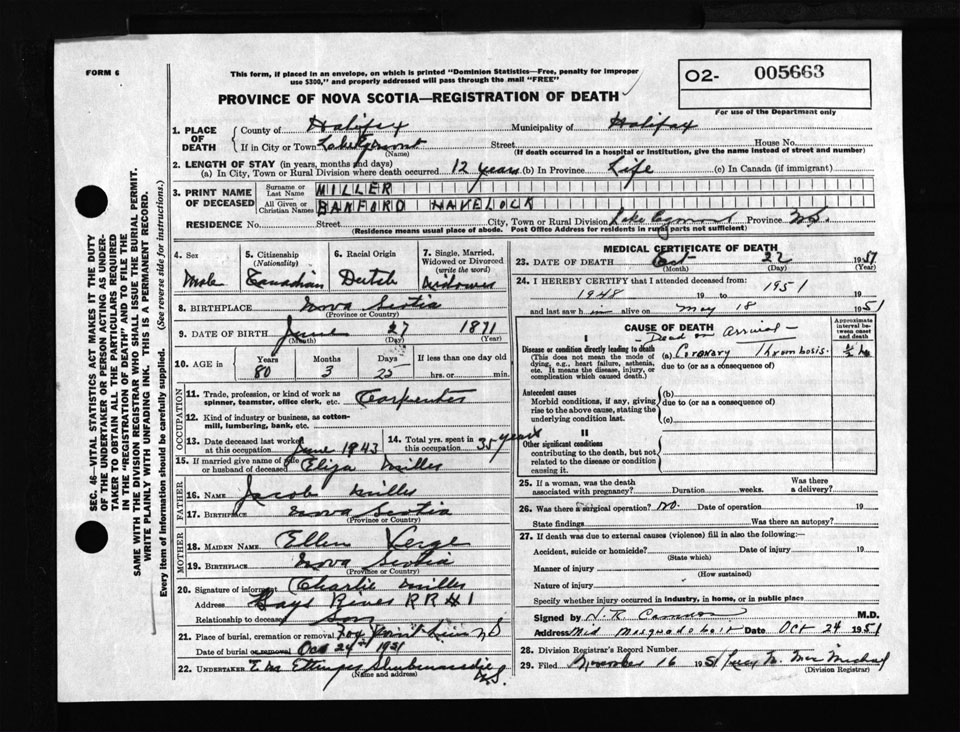 FORM 6
This form, if placed in an envelope, on which is printed "Dominion Statistics—Free, penalty for improper
use $300," and properly addressed will pass through the mail "FREE"
O2- 005663
For use of the Department only
PROVINCE OF NOVA SCOTIA—REGISTRATION OF DEATH
1. PLACE OF DEATH
County of Halifax Municipality of Halifax
If in City or Town Lake Egmont Street House No.
(Name) (If death occurred in a hospital or institution, give the name instead of street and number)
2. LENGTH OF STAY (in years, months and days)
(a) In City, Town or Rural Division where death occurred 12 years (b) In Province Life (c) In Canada (if immigrant)
3. PRINT NAME OF DECEASED
Surname or Last Name MILLER
All Given or Christian Names BANFORD HAVELOCK
RESIDENCE No. Street City, Town or Rural Division Lake Egmont Province N.S.
(Residence means usual place of abode. Post Office Address for residents in rural parts not sufficient)
4. Sex
Male
5. Citizenship (Nationality)
Canadian
6. Racial Origin
Dutch
7. Single, Married, Widowed or Divorced (write the word)
Widower
8. BIRTHPLACE Nova Scotia
(Province or Country)
9. DATE OF BIRTH June 27 1871
(Month) (Day)
10. AGE in Years Months Days If less than one day old
80 3 25 hrs. or min.
OCCUPATION
11. Trade, profession, or kind of work as spinner, teamster, office clerk, etc. Carpenter
12. Kind of industry or business, as cotton-mill, lumbering, bank, etc.
13. Date deceased last worked at this occupation June 1943
14. Total yrs. spent in this occupation 35 years
15. If married give name of wife or husband of deceased Eliza Miller
FATHER
16. NAME Jacob Miller
17. BIRTHPLACE Nova Scotia
(Province or Country)
MOTHER
18. MAIDEN NAME Ellen
19. BIRTHPLACE Nova Scotia
(Province or Country)
20. Signature of informant Charlie Miller
Address Gays River RR #1
Relationship to deceased Son
21. Place of burial, cremation or removal
Date of burial or removal Oct 24th 1951
22. UNDERTAKER E M Ettinger Shubenacadie N.S.
(Name and address)
MEDICAL CERTIFICATE OF DEATH
23. DATE OF DEATH Oct 22 1951
(Month) (Day) (Year)
24. I HEREBY CERTIFY that I attended deceased from:
1948 19 to 1951 19
and last saw him alive on May 18 1951
CAUSE OF DEATH
Approximate interval between onset and death
Dead on arrival
I
Disease or condition directly leading to death
(This does not mean the mode of dying, e.g., heart failure, asthenia, etc. It means the disease, injury, or complication which caused death.)
(a) Coronary Thrombosis.
due to (or as a consequence of)
Antecedent causes
Morbid conditions, if any, giving rise to the above cause, stating the underlying condition last.
(b)
due to (or as a consequence of)
(c)
II
Other significant conditions contributing to the death, but not related to the disease or condition causing it.
25. If a woman, was the death associated with pregnancy? Duration weeks. Was there a delivery?
26. Was there a surgical operation? No. Date of operation 19
State findings Was there an autopsy?
27. If death was due to external causes (violence) fill in also the following:—
Accident, suicide or homicide? Date of injury 19
(State which)
Manner of injury
(How sustained)
Nature of injury
Specify whether injury occurred in industry, in home, or in public place
Signed by M.D.
Address Mid Musquodoboit Date Oct 24 1951
28. Division Registrar's Record Number
29. Filed November 16 1951
(Division Registrar)
SEC. 46—VITAL STATISTICS ACT MAKES IT THE DUTY
OF THE UNDERTAKER OR PERSON ACTING AS UNDER-
TAKER TO OBTAIN ALL THE PARTICULARS REQUIRED
IN THE "REGISTRATION OF DEATH" AND TO FILE THE
SAME WITH THE DIVISION REGISTRAR WHO SHALL ISSUE THE BURIAL PERMIT.
WRITE PLAINLY WITH UNFADING INK. THIS IS A PERMANENT RECORD.
Every item of information should be carefully supplied. (See reverse side for instructions.)